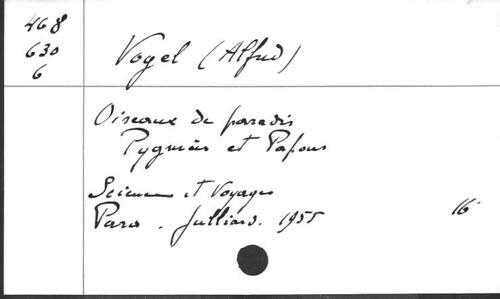 468
630
6
Vogel (Alfred)
Oiseaux de paradis
Pygmées et Papous
Sciences et Voyages
Paris. Julliard. 1955
16°